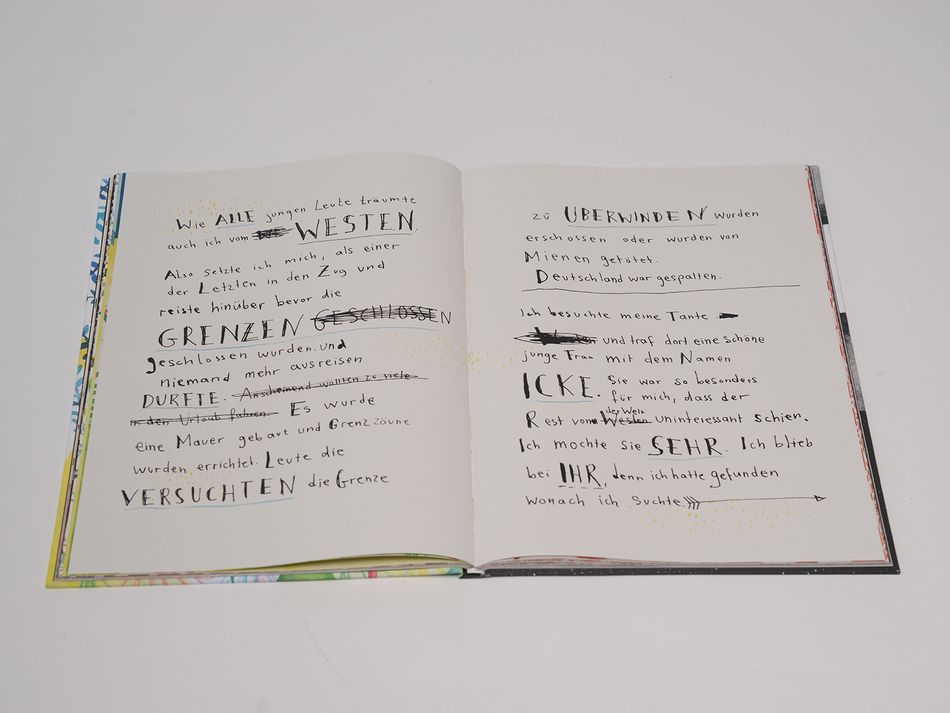 Wie ALLE jungen Leute träumte
auch ich vom WESTEN.
Also setzte ich mich, als einer
der Letzten in den Zug und
reiste hinüber bevor die
GRENZEN GESCHLOSSEN
geschlossen wurden. und
niemand mehr ausreisen
DURFTE. Anscheinend wollten zu viele
in den Urlaub fahren. Es wurde
eine Mauer gebaut und Grenzzäune
wurden errichtet. Leute die
VERSUCHTEN die Grenze
zu ÜBERWINDEN wurden
erschossen oder wurden von
Mienen getötet.
Deutschland war gespalten.
Ich besuchte meine Tante
und traf dort eine schöne
junge Frau mit dem Namen
ICKE. Sie war so besonders
für mich, dass der
Rest vom Westen der Welt Uninteressant schien.
Ich mochte sie SEHR. Ich blieb
bei IHR, denn ich hatte gefunden
wonach ich Suchte.